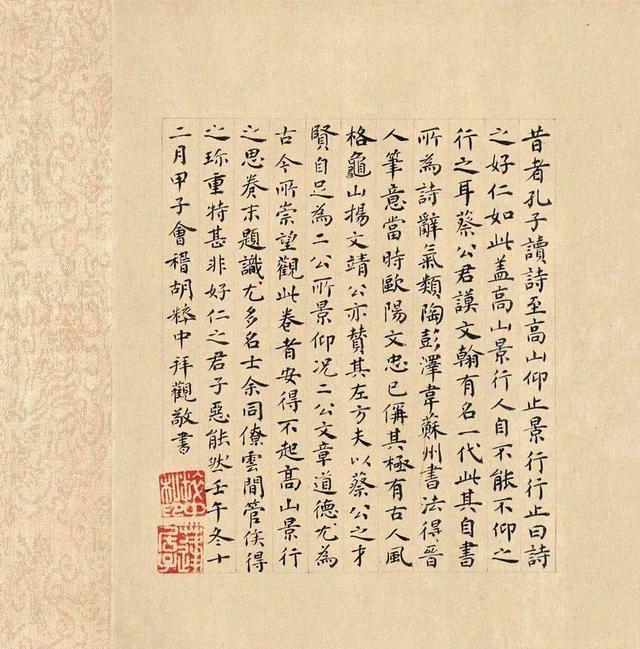 昔者孔子讀詩至高山仰止景行行止曰詩
之好仁如此盖高山景行人自不能不仰之
行之耳蔡公君謨文翰有名一代此其自書
所為詩辭氣類陶彭澤韋蘇州書法得晉
人筆意當時歐陽文忠已偁其極有古人風
格龜山揚文靖公亦贊其左方夫以蔡公之才
賢自足為二公所景仰况二公文章道德尤為
古今所崇望觀此卷者安得不起高山景行
之思卷末題識尤多名士余同僚雲間管俟得
之珎重特甚非好仁之君子惡能然壬午冬十
二月甲子會稽胡粹中拜觀敬書